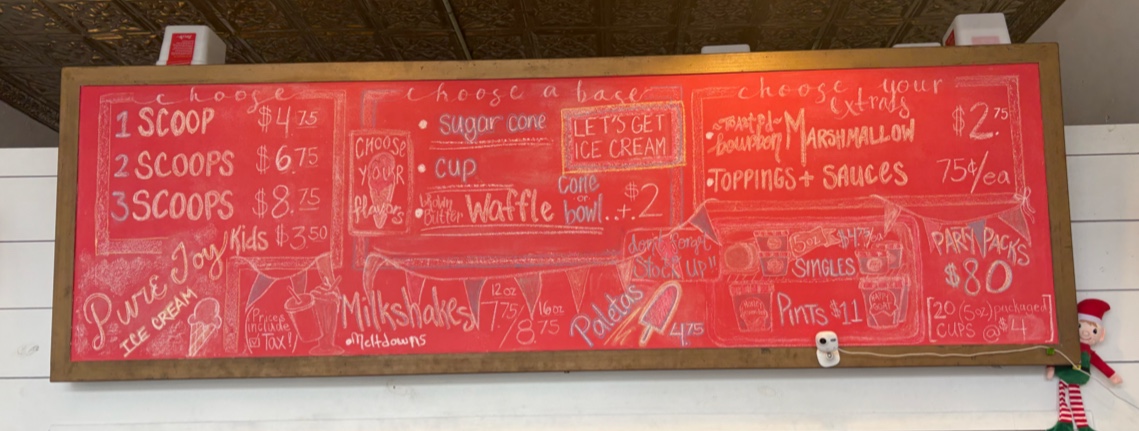 choose
1 SCOOP $4.75
2 SCOOPS $6.75
3 SCOOPS $8.75
Kids $3.50
Pure Joy
ICE CREAM
Prices
include
Tax!
choose a base
CHOOSE
YOUR
flavors
• sugar cone
• cup
• brown
butter
Waffle cone
or
bowl..+.$2
LET'S GET
ICE CREAM
choose your
extras
• toasted
bourbon MARSHMALLOW $2.75
• TOPPINGS + SAUCES 75¢/ea
Milkshakes
• Meltdowns
12oz
7.75/
16oz
8.75
Paletas
4.75
don't forget
to
Stock up!!
5oz $4.75
SINGLES
PINTS $11
PARTY PACKS
$80
[20 (5oz) packaged
CUPS @ $4]